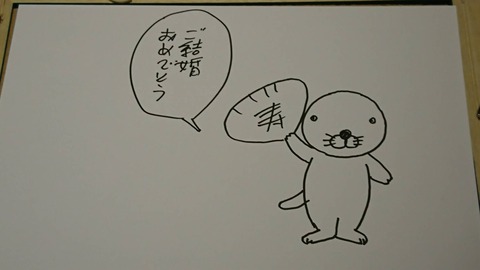 ご結婚
おめでとう
寿